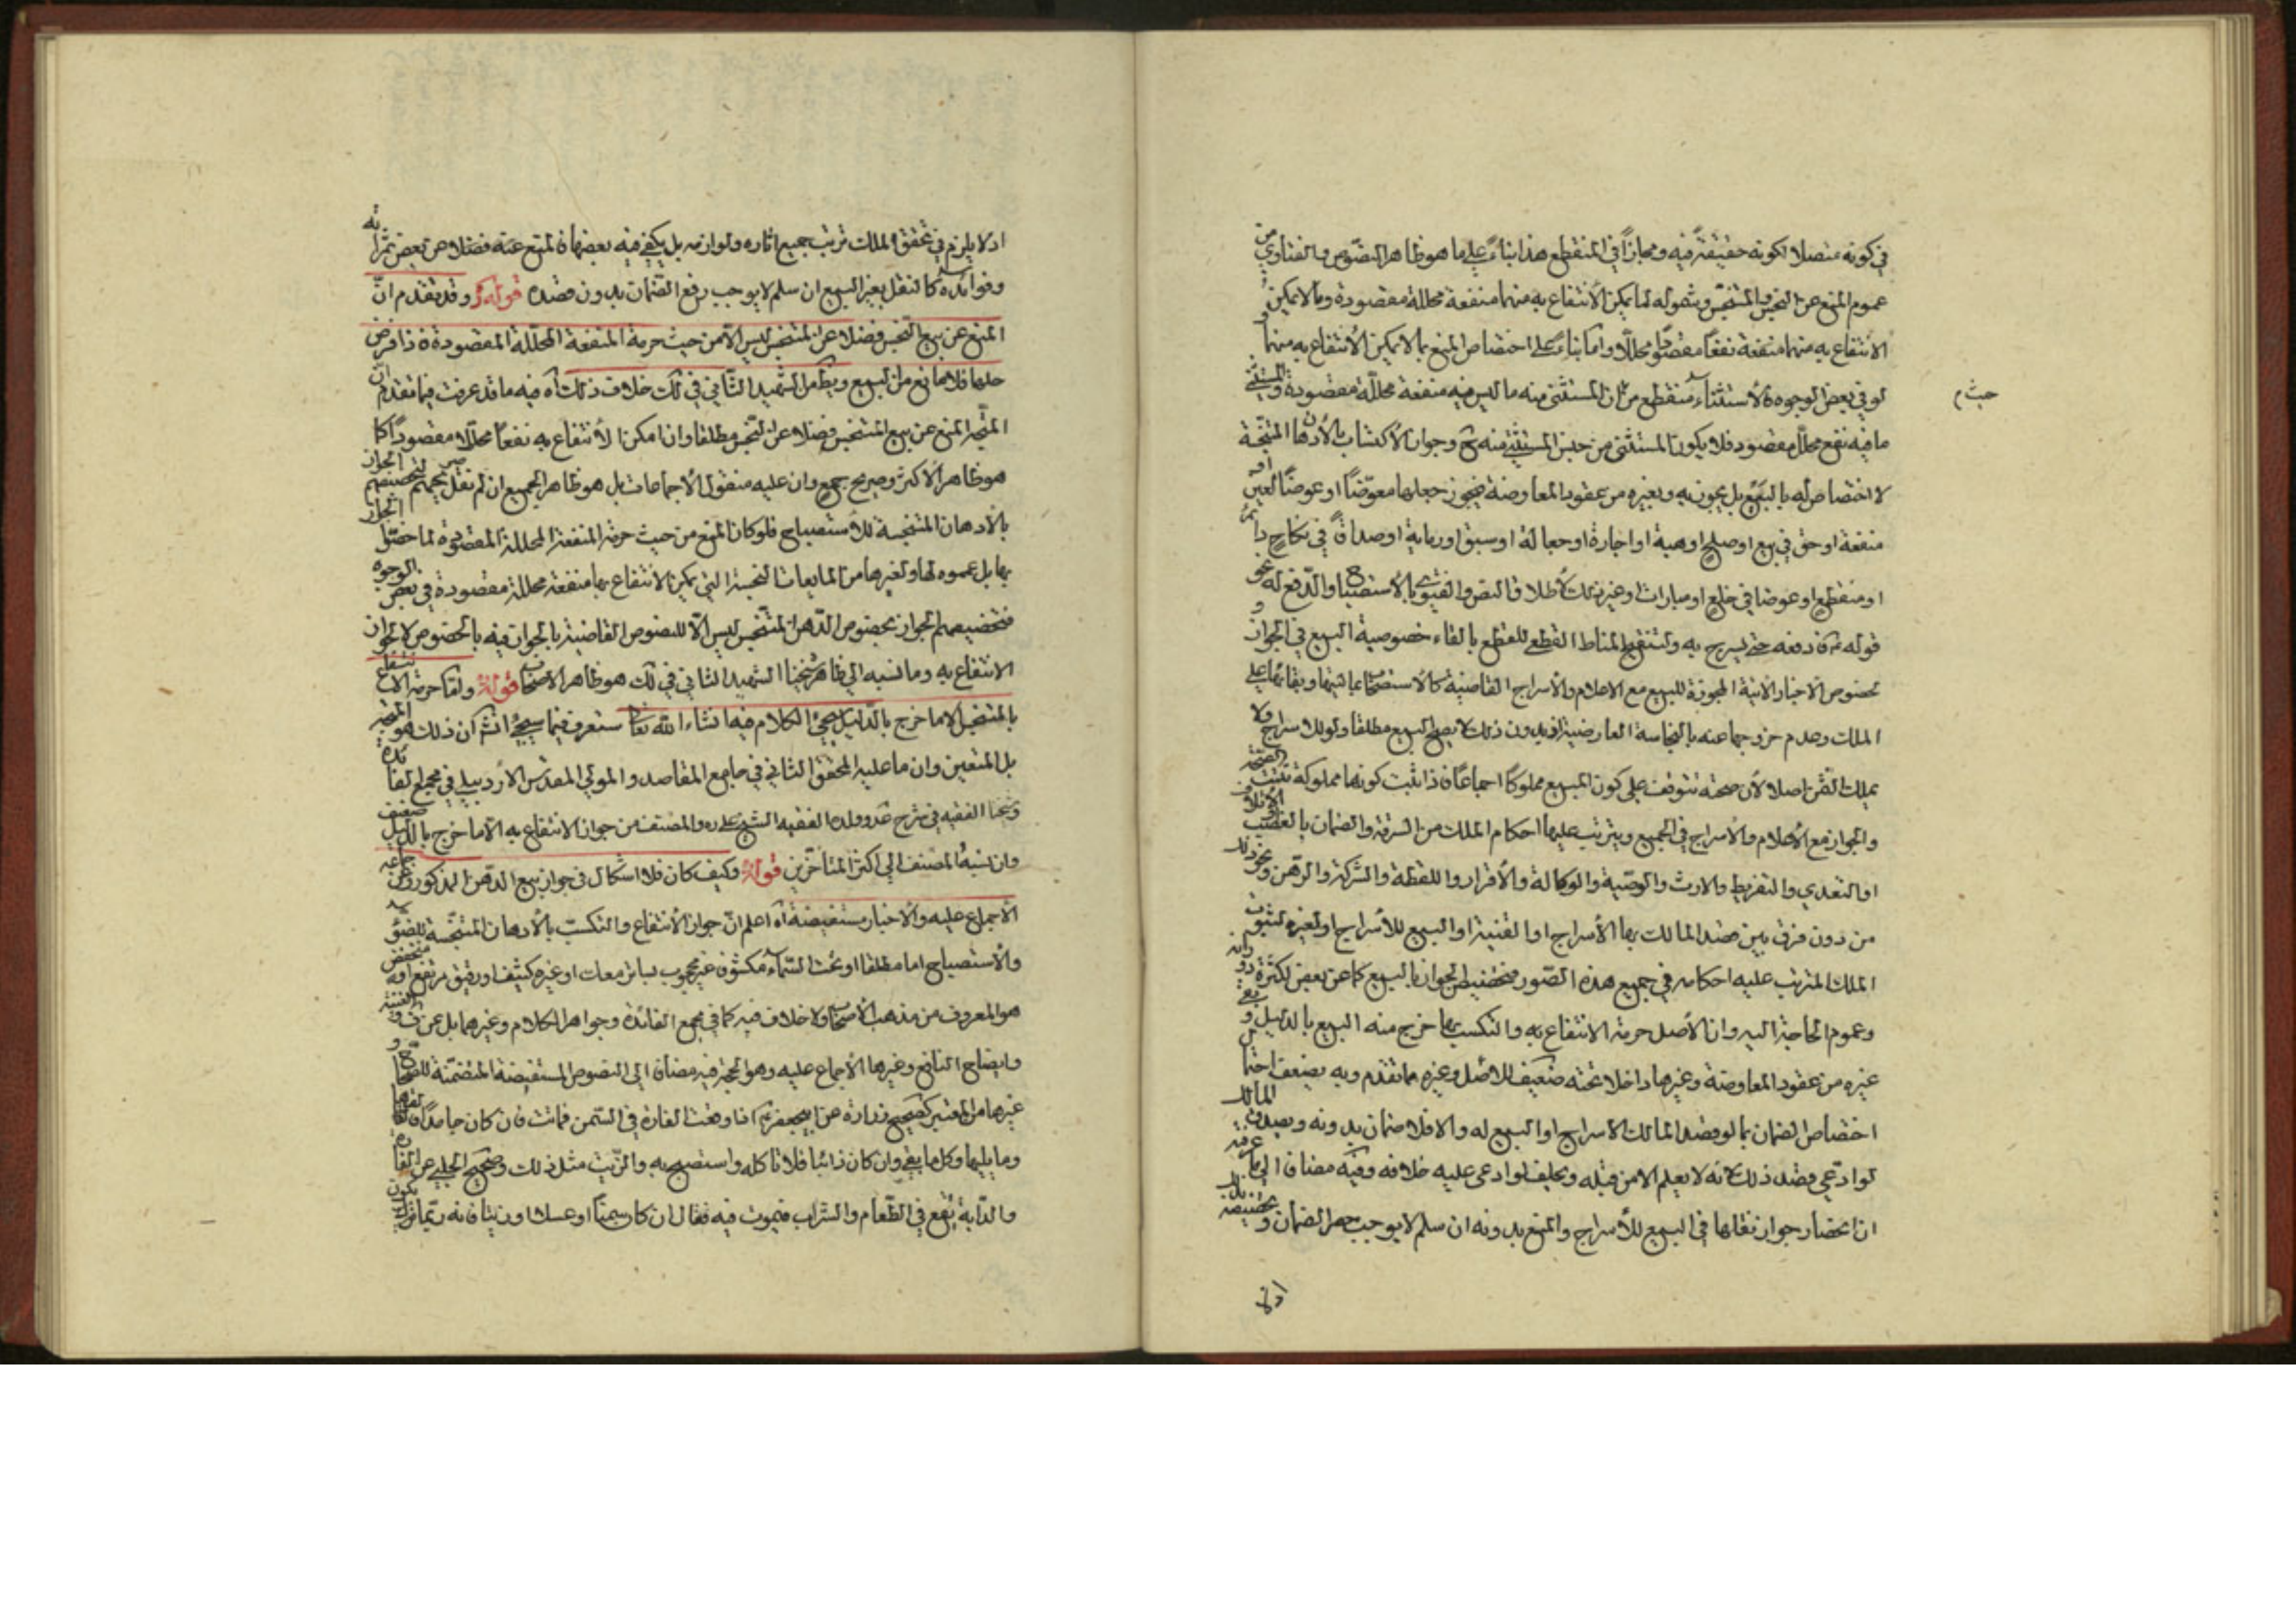 في كونه متصلا لكونه حقيقة فيه ومجازاً في المنقطع هذا بناءً على ما هو ظاهر النصوص والفتاوي من
عموم المنع عن النجس والمتنجس وشموله لما يمكن الأنتفاع به منهما منفعة محللة مقصودة وما لا يمكن
الانتفاع به منهما منفعة نفعاً مقصوداً محللاً واما بناءً على اختصاص المنع بما لا يمكن الأنتفاع به منهما
لو في بعض الوجوه فالأستثناء منقطع من ان المستثنى منه ما ليس فيه منفعة محللة مقصودة والمستثنى
حيث م
ما فيه نفع محلل مقصود فلا يكون المستثنى من جنس المستثنى منه وجواز الأكتساب بالأدهان المتنجسة
لا اختصاص له بالبيع بل يجوز به وبغيره من عقود المعاوضة فيجوز جعلها معوّضاً او عوضاً لعين او
منفعة او حق في بيع او صلح او هبة او اجارة او جعالة او سبق او رماية او صداق في نكاح دائم
او منقطع او عوضا في خلع او مبارات او غير ذلك لأطلاق النص والفتوى بالأستصباح والدفع له نحو
قوله فادفعه حتى يسرج به ولتنقيح المناط القطعي للقطع بالغاء خصوصية البيع في الجواز و
خصوص الاخبار الاتية المجوزة للبيع مع الاعلام والأسراج القاضية كالاستصحاب بماليتها وبقائها على
الملك وعدم خروجها عنه بالنجاسة العارضية اذ بدون ذلك لا يصح البيع مطلقا ولو للاسراج ولا
يملك الثمن اصلا لأن صحته تتوقف على كون المبيع مملوكاً اجماعاً فاذا ثبت كونها مملوكة تثبت الصحة
والجواز مع الأعلام والأسراج في الجميع ويترتب عليها احكام الملك من السرقة والضمان بالغصب او الأتلاف
او التعدي والتفريط والارث والوصية والوكالة والأقرار واللقطة والشركة والرهن ونحو ذلك
من دون فرق بين قصد المالك بها الأسراج او القنية او البيع للأسراج او لغيره لثبوت
الملك المترتب عليه احكامه في جميع هذه الصور فتخصيص الجواز بالبيع كما عن بعض لكثرة دورانه
وعموم الحاجة اليه وان الأصل حرمة الانتفاع به والتكسب بها خرج منه البيع بالدليل وبقي
غيره من عقود المعاوضة وغيرها داخلا تحته ضعيف للاصل وغيره مما تقدم وبه يضعف احتمال
اختصاص الضمان بما لو قصد المالك الاسراج او البيع له والا فلا ضمان بدونه ويصدق المالك
لو ادّعى قصد ذلك لانه لا يعلم الا من قبله ويحلف لو ادعى عليه خلافه وفيه مضافا الى ما عرفته
ان انحصار جواز نقلها في البيع للأسراج والمنع بدونه ان سلم لا يوجب حصر الضمان وتخصيصه بذلك
اذلا
اذ لا يلزم في تحقق الملك ترتب جميع اثاره ولوازمه بل يكفي فيه بعضها فالمنع عنه فضلا عن بعض ثمراته
وفوائده كالنقل بغير البيع ان سلم لا يوجب رفع الضمان بدون قصده قوله وقد تقدم انّ
المنع عن بيع النجس فضلا عن المتنجس ليس الّا من حيث حرمة المنفعة المحللة المقصودة فاذا فرض
حلها فلا مانع من البيع ويظهر من الشهيد الثاني في لك خلاف ذلك آه فيه ما قد عرفت فيما تقدم ان
المتّجه المنع عن بيع المتنجس فضلا عن النجس مطلقا وان امكن الأنتفاع به نفعاً محللا مقصوداً كما
هو ظاهر الأكثر وصريح جمع وان عليه منقول الأجماعات بل هو ظاهر الجميع ان لم نقل صريحهم لتخصيصهم الجواز
بالأدهان المتنجسة للأستصباح فلو كان المنع من حيث حرمة المنفعة المحللة المقصودة لما خصّوا الجواز
بها بل عمموه لها ولغيرها من المايعات النجسة التي يمكن الانتفاع بها منفعة محللة مقصودة في بعض الوجوه
فتخصيصهم الجواز بخصوص الدهن المتنجس ليس الّا للنصوص القاضية بالجواز فيه بالخصوص لا لجواز
الانتفاع به وما نسبه الى ظاهر شيخنا الشهيد الثاني في لك هو ظاهر الاصحاب قوله وامّا حرمة الانتفاع
بالمتنجس الا ما خرج بالدليل فسيجئ الكلام فيها انشاء الله تعالى ستعرف فيما سيجئ انشاء ان ذلك هو المتجه
بل المتعين وان ما عليه المحقق الثاني في جامع المقاصد والمولى المقدس الاردبيلي في مجمع الفائدة
وشيخنا الفقيه في شرح عد وولده الفقيه الشيخ علي ره والمصنف من جواز الانتفاع به الّا ما خرج بالدليل ضعيف
وان نسبه المصنف الى اكثر المتأخرين قوله وكيف كان فلا اشكال في جواز بيع الدهن المذكور وعن جماعة
الأجماع عليه والأخبار مستفيضة آه اعلم انّ جواز الأنتفاع والتكسب بالأدهان المتنجسة للضوء
والأستصباح اما مطلقا او تحت السماء مكشوف غير محجوب بساتر معات او غيره كثيف او رقيق مرتفع او منخفض
هو المعروف من مذهب الأصحاب ولا خلاف فيه كما في مجمع الفائدة وجواهر الكلام وغيرهما بل عن ف والغنية
وايضاح النافع وغيرها الأجماع عليه وهو الحجة فيه مضافا الى النصوص المستفيضة المتضمنة للصحاح و
غيرها من المعتبر كصحيح زرارة عن ابيجعفر ع اذا وقعت الفارة في السمن فماتت فان كان جامداً فالقها
وما يليها وكل ما بقي وان كان ذائبا فلا تاكله واستصبح به والزيت مثل ذلك وصحيح الحلبي عن الفارة
والدابة تقع في الطعام والشراب فتموت فيه فقال ان كان سمناً او عسلا او زيتا فانه ربما يكون